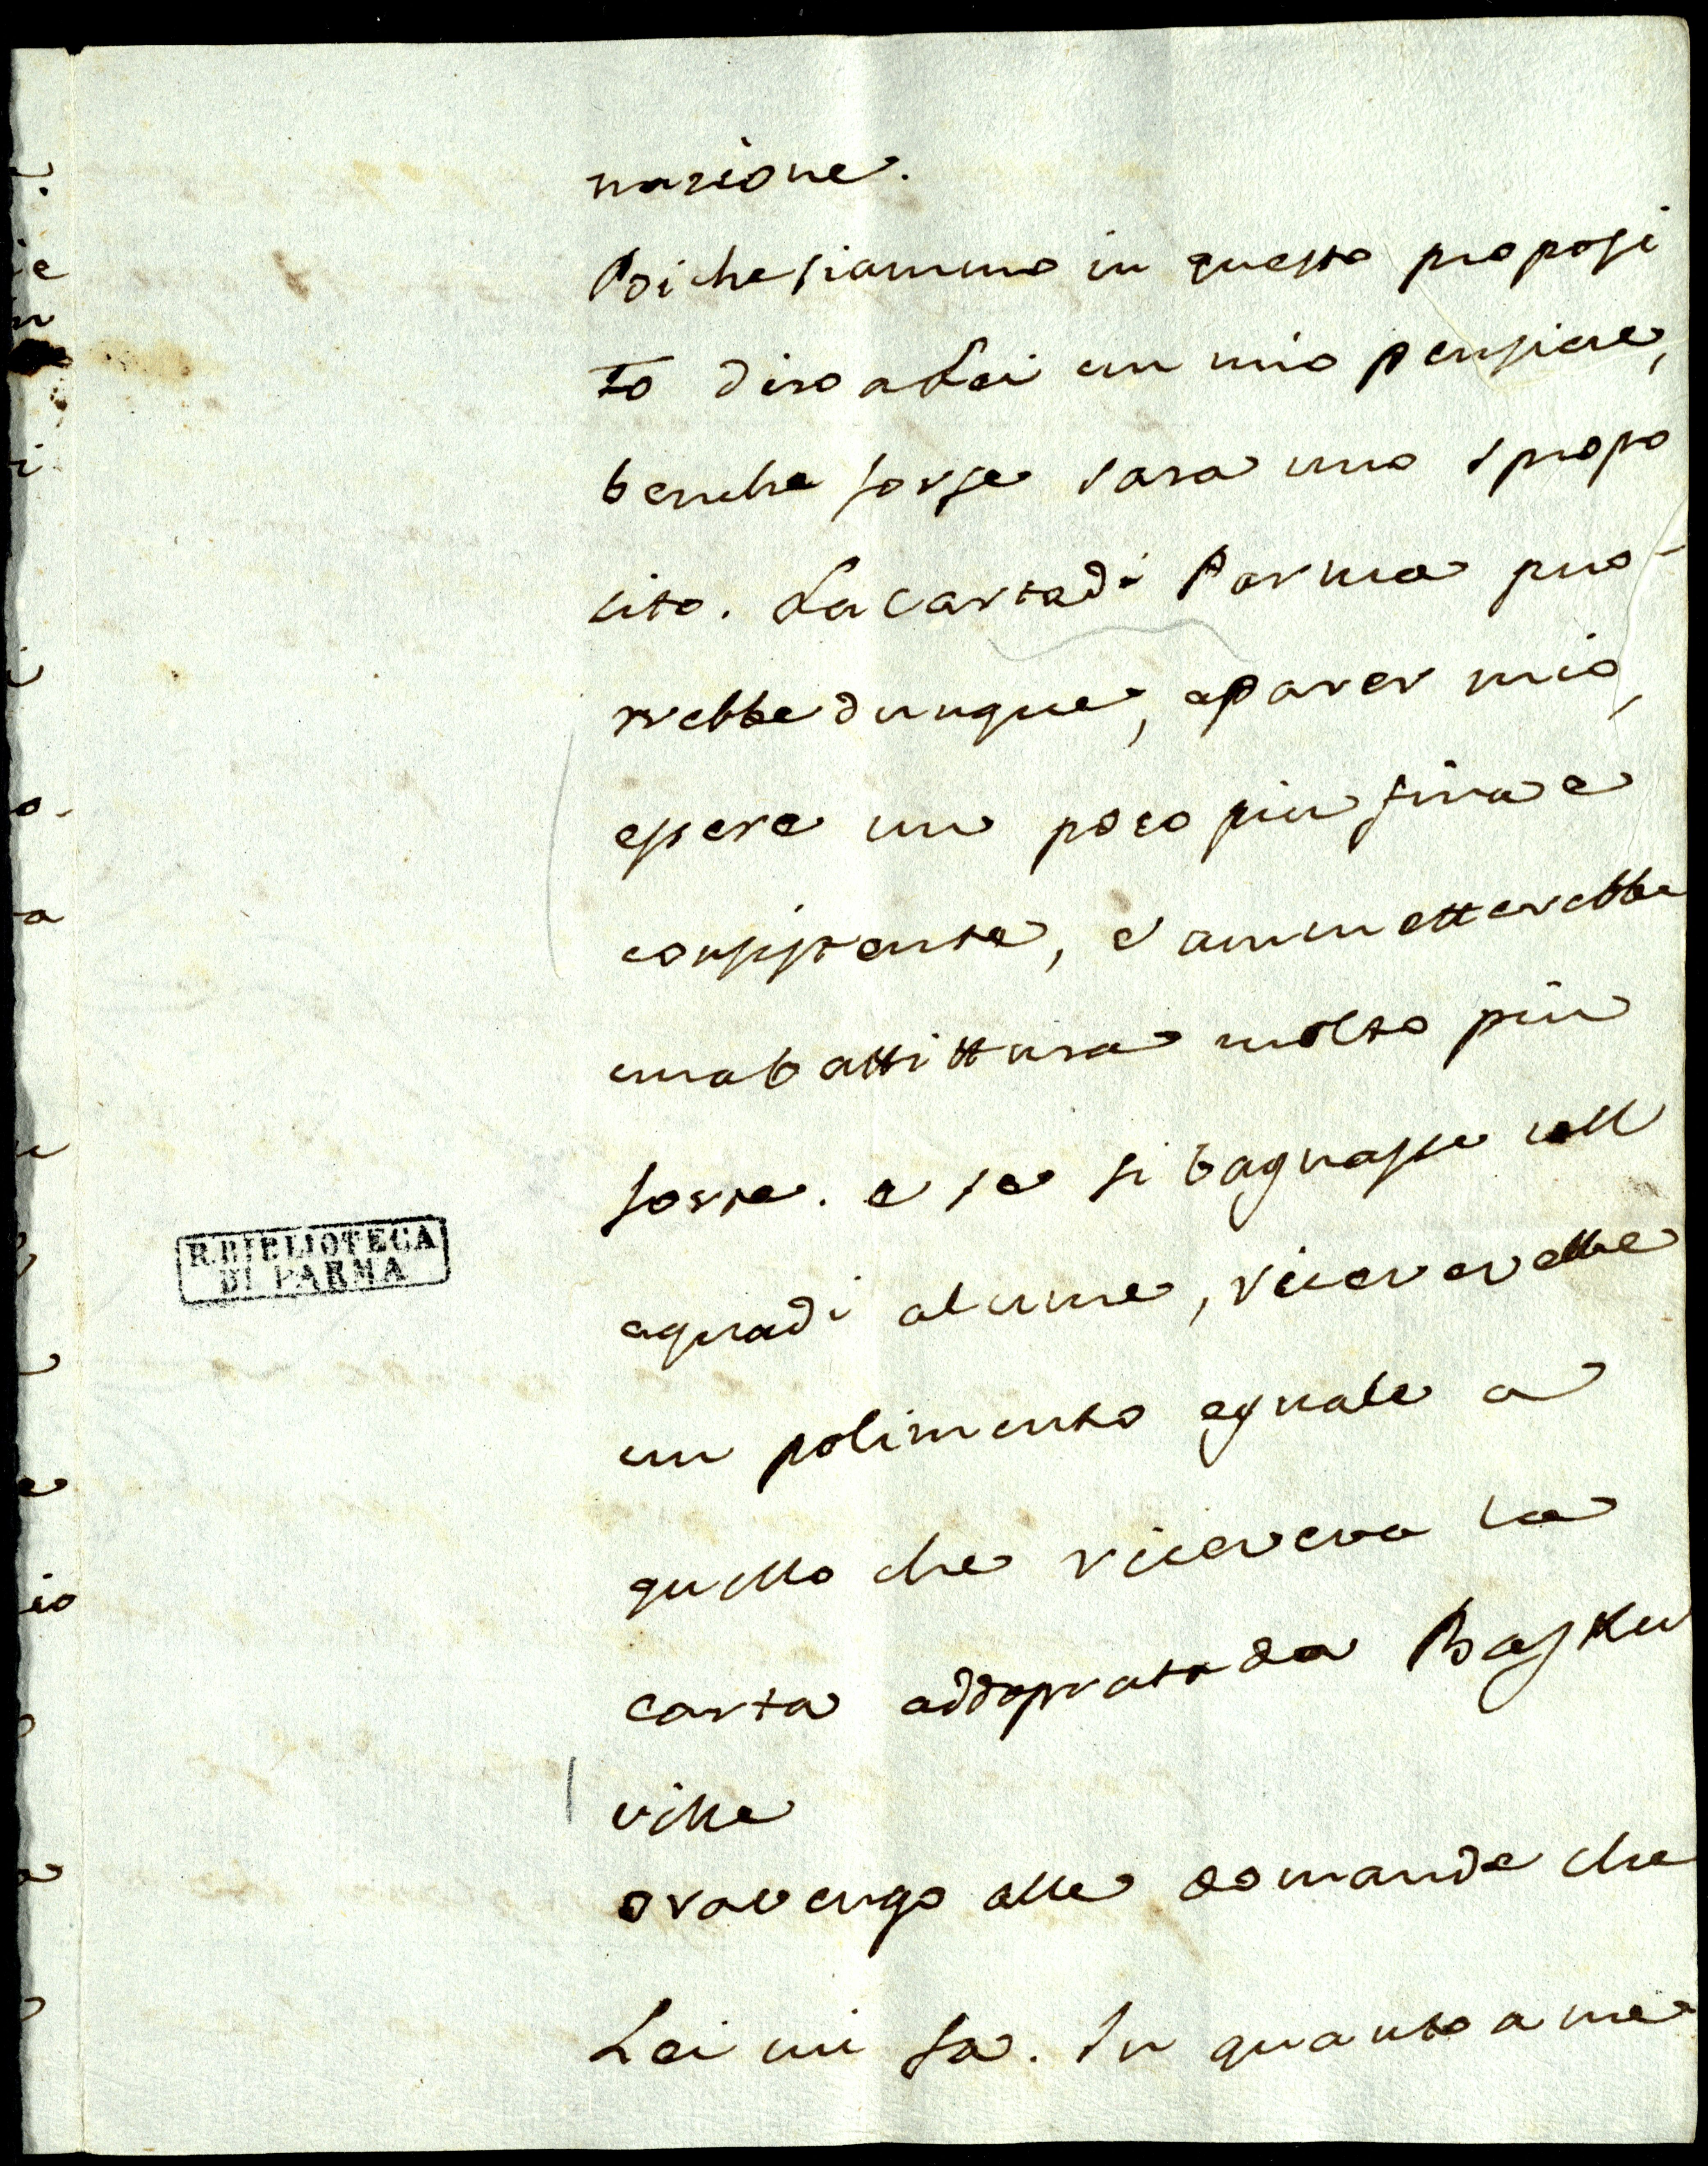 nazione.
Poiche siammo in questo proposi
to diro a Lei un mio pensiere,
benche forse sara uno spropo
sito. La carta di Parma puo
rrebbe dunque, a parer mio,
essere un poco piu fina e
consistente, e ammetterebbe
una battittura molto più
forte. e se si bagnasse coll
aqua di alume, ricererebbe
un polimento eguale a
quello che riceveva la
carta addoprata da Basker
ville
ora vengo alle domande che
Lei mi fa. In quanto a me
R. BIBLIOTECA
DI PARMA